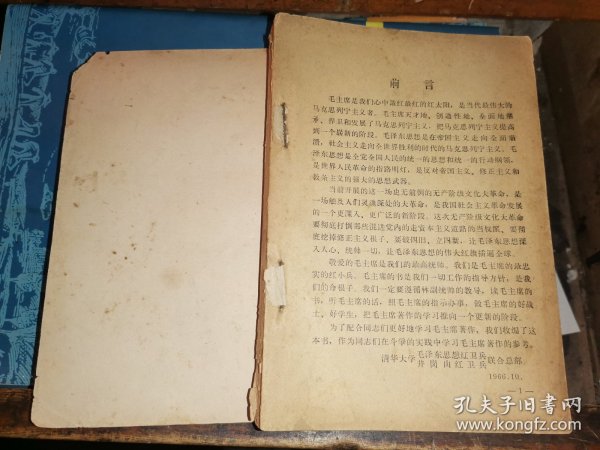 前言
毛主席是我们心中最红最红的红太阳，是当代最伟大的
马克思列宁主义者。毛主席天才地、创造性地、全面地继
承、捍卫和发展了马克思列宁主义，把马克思列宁主义提高
到一个崭新的阶段。毛泽东思想是在帝国主义走向全面崩
溃，社会主义走向全世界胜利的时代的马克思列宁主义。毛
泽东思想是全党全国人民的统一的思想和统一的行动纲领，
是世界人民革命的指路明灯，是反对帝国主义、修正主义和
教条主义的强大的思想武器。
当前开展的这一场史无前例的无产阶级文化大革命，是
一场触及人们灵魂深处的大革命，是我国社会主义革命发展
的一个更深入、更广泛的新阶段。这次无产阶级文化大革命
要彻底打倒那些混进党内的走资本主义道路的当权派，要彻
底挖掉修正主义根子，要破四旧，立四新，让毛泽东思想深
入人心，统帅一切，让毛泽东思想的伟大红旗插遍全球。
敬爱的毛主席是我们的最高统帅。我们是毛主席的最忠
实的红小兵。毛主席的书是我们一切工作的指导方针，是我
们的命根子。我们一定要遵循林副统帅的教导，读毛主席的
书，听毛主席的话，照毛主席的指示办事，做毛主席的好战
士、好学生，把毛主席著作的学习推向一个更新的阶段。
为了配合同志们更好地学习毛主席著作，我们收编了这
本书，作为同志们在斗争的实践中学习毛主席著作的参考。
清华大学毛泽东思想红卫兵井岗山红卫兵联合总部
1966.10.
—1—
孔夫子旧书网
www.kongfz.com